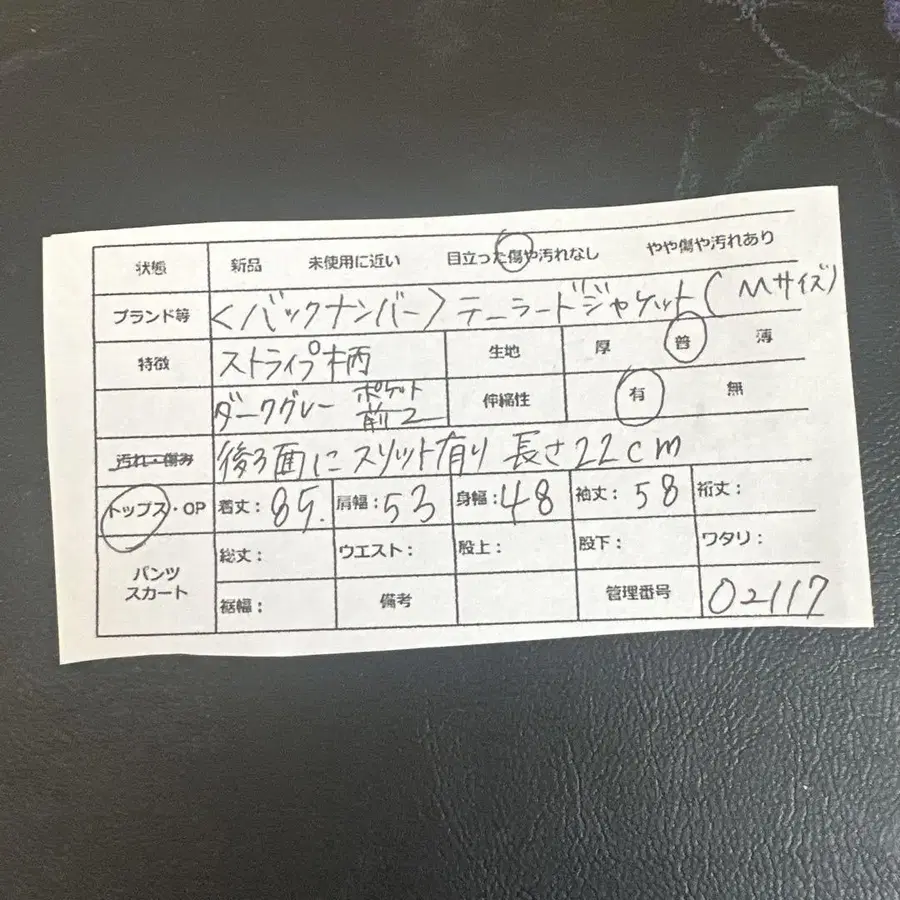 状態 新品 未使用に近い 目立った傷や汚れなし やや傷や汚れあり
ブランド等 〈バックナンバー〉テーラードジャケット(Mサイズ)
特徴 ストライプ柄 生地 厚 普 薄
ダークグレー ポケット前2 伸縮性 有 無
汚れ・傷み 後ろ面にスリット有り 長さ22cm
トップス・OP 着丈: 85. 肩幅: 53 身幅: 48 袖丈: 58 裄丈:
パンツ スカート 総丈: ウエスト: 股上: 股下: ワタリ:
裾幅: 備考 管理番号 02117